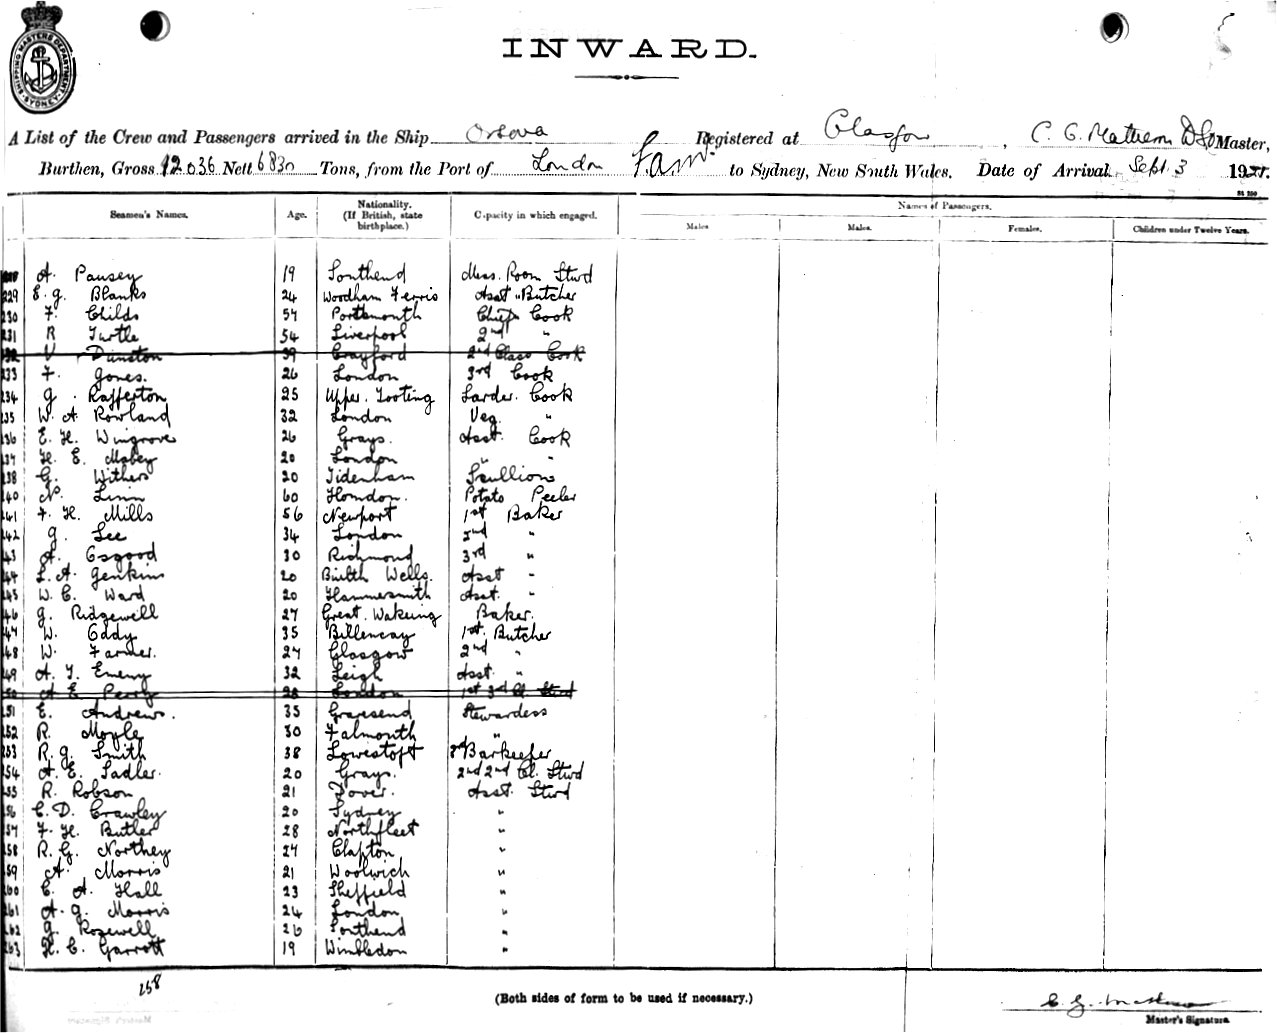 SHIPPING MASTERS DEPARTMENT SYDNEY
INWARD.
A List of the Crew and Passengers arrived in the Ship Orsova Registered at Glasgow, C. G. Matheson DSO Master,
Burthen, Gross 12036 Nett 6830 Tons, from the Port of London to Sydney, New South Wales. Date of Arrival Sept. 3 1921.
Seamen's Names. Age. Nationality. (If British, state birthplace.) Capacity in which engaged. Names of Passengers.
Males Males. Females. Children under Twelve Years.
A. Pausey 19 Southend Mess. Room Stwd
229 E. G. Blanks 24 Woodham Ferris Asst "Butcher
230 F. Childs 57 Portsmouth Chief Cook
231 R Turtle 54 Liverpool 2nd "
232 V Dunston 39 Crayford 2nd Class Cook
233 F. Jones. 26 London 3rd Cook
234 G. Rafferton 25 Upper. Tooting Larder. Cook
235 W. A. Rowland 32 London Veg. "
236 E. H. Wingrove 26 Grays. Asst. Cook
237 H. E. Mobey 20 London " "
238 G. Withers 20 Tidenham Scullion
240 N. Linn 60 Horndon. Potato Peeler
241 F. H. Mills 56 Newport 1st Baker
242 G. Lee 34 London 2nd "
243 A. Osgood 30 Richmond 3rd "
244 L. A. Jenkins 20 Builth Wells. Asst "
245 W. C. Ward 20 Hammersmith Asst. "
246 G. Ridgewell 27 Great. Wakering Baker.
247 W. Eddy 35 Billericay 1st. Butcher
248 W. Farmer. 27 Glasgow 2nd "
249 A. T. Emeny 32 Leigh Asst. "
250 A E Perry 28 London 1st 3rd Cl. Stwd
251 E. Andrews. 35 Gravesend Stewardess
252 R. Moyle 30 Falmouth "
253 R. G. Smith 38 Lowestoft 2nd Barkeeper
254 A. E. Sadler. 20 Grays. 2nd 2nd Cl. Stwd
255 R. Robson 21 Dover. Asst. Stwd
256 C. D. Crawley 20 Sydney "
257 F. H. Butler 28 Northfleet "
258 R. G. Northey 27 Clapton "
259 A. Morris 21 Woolwich "
260 C. A. Hall 23 Sheffield "
261 A. G. Morris 24 London "
262 G. Rosewell 26 Southend "
263 H. C. Garrott 19 Wimbledon "
258
(Both sides of form to be used if necessary.)
C. G. Matheson
Master's Signature